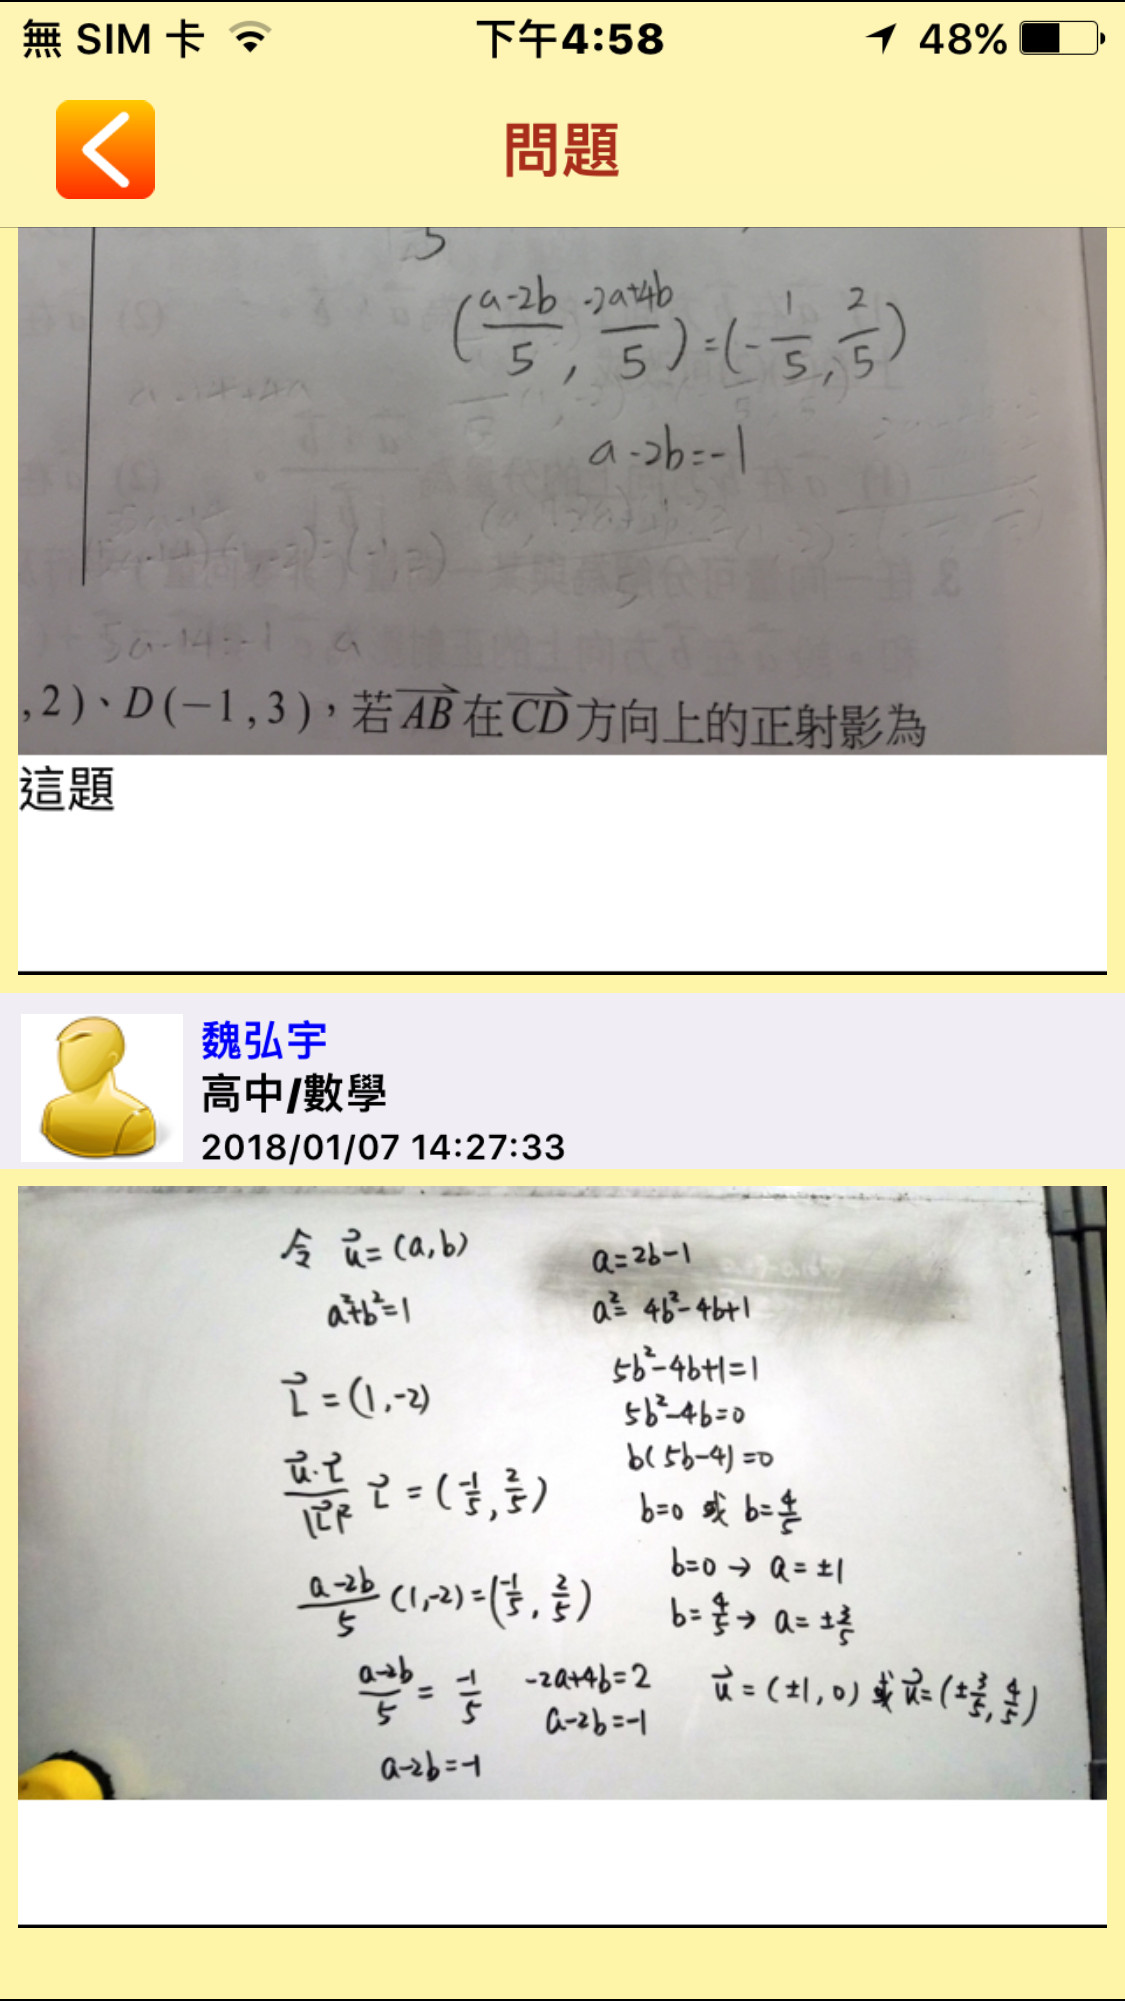 無 SIM 卡 下午4:58 48%
問題
5
(a-2b/5, -2a+4b/5)=(-1/5, 2/5)
a-2b=-1
5a-14=-1 a
,2)、D(-1,3),若AB在CD方向上的正射影為
這題
魏弘宇
高中/數學
2018/01/07 14:27:33
令 u⃗=(a,b)
a²+b²=1
L⃗=(1,-2)
u⃗·L⃗/|L⃗|² L⃗=(-1/5, 2/5)
a-2b/5 (1,-2)=(-1/5, 2/5)
a-2b/5 = -1/5
a-2b=-1
-2a+4b=2
a-2b=-1
a=2b-1
a²=4b²-4b+1
5b²-4b+1=1
5b²-4b=0
b(5b-4)=0
b=0 或 b=4/5
b=0→a=±1
b=4/5→a=±3/5
u⃗=(±1,0)或u⃗=(±3/5, 4/5)